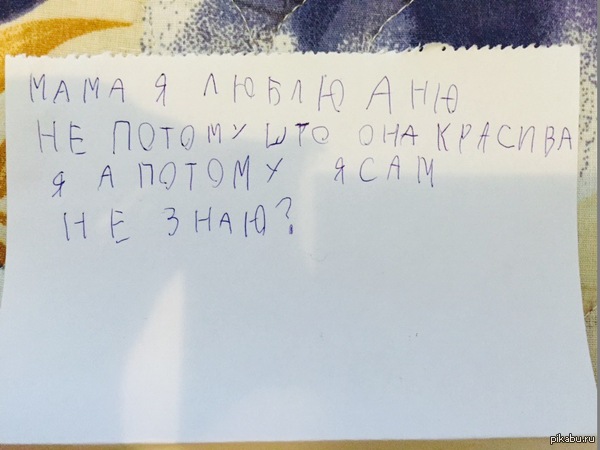 МАМА Я ЛЮБЛЮ АНЮ
НЕ ПОТОМУ ШТО ОНА КРАСИВА
Я А ПОТОМУ ЯСАМ
НЕ ЗНАЮ?
pikabu.ru